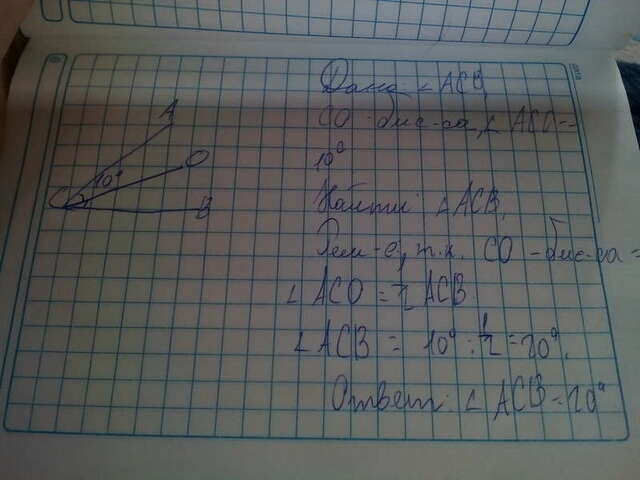 Дано: ∠ ACB,
CO - бис-са, ∠ ACO =
10°
Найти: ∠ACB,
Реш-е, т.к. CO - бис-са =
∠ ACO = 1/2 ACB
∠ ACB = 10° : 1/2 = 20°.
Ответ: ∠ ACB = 20°
A
O
10°
C
B